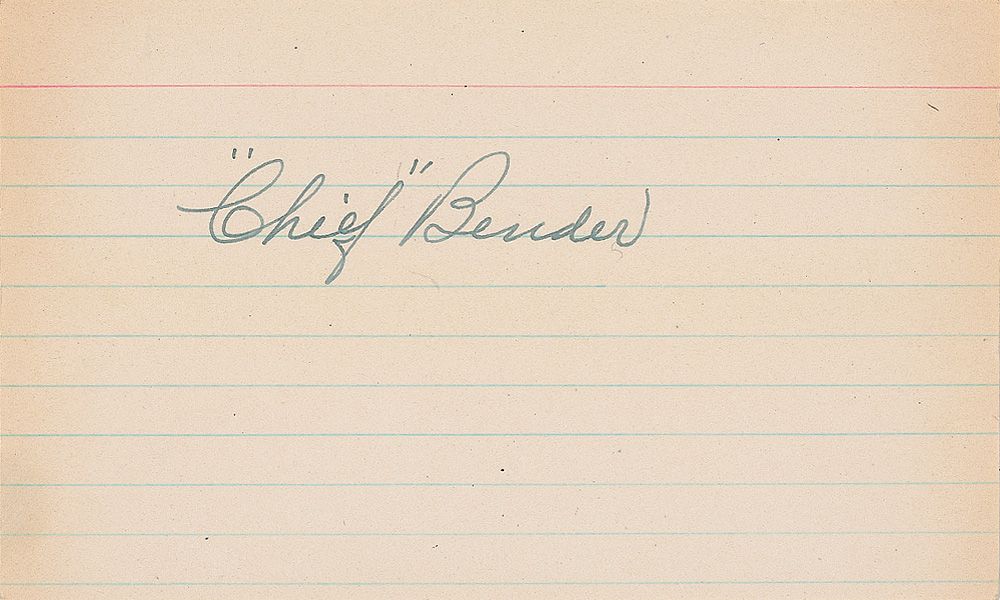 "Chief" Bender